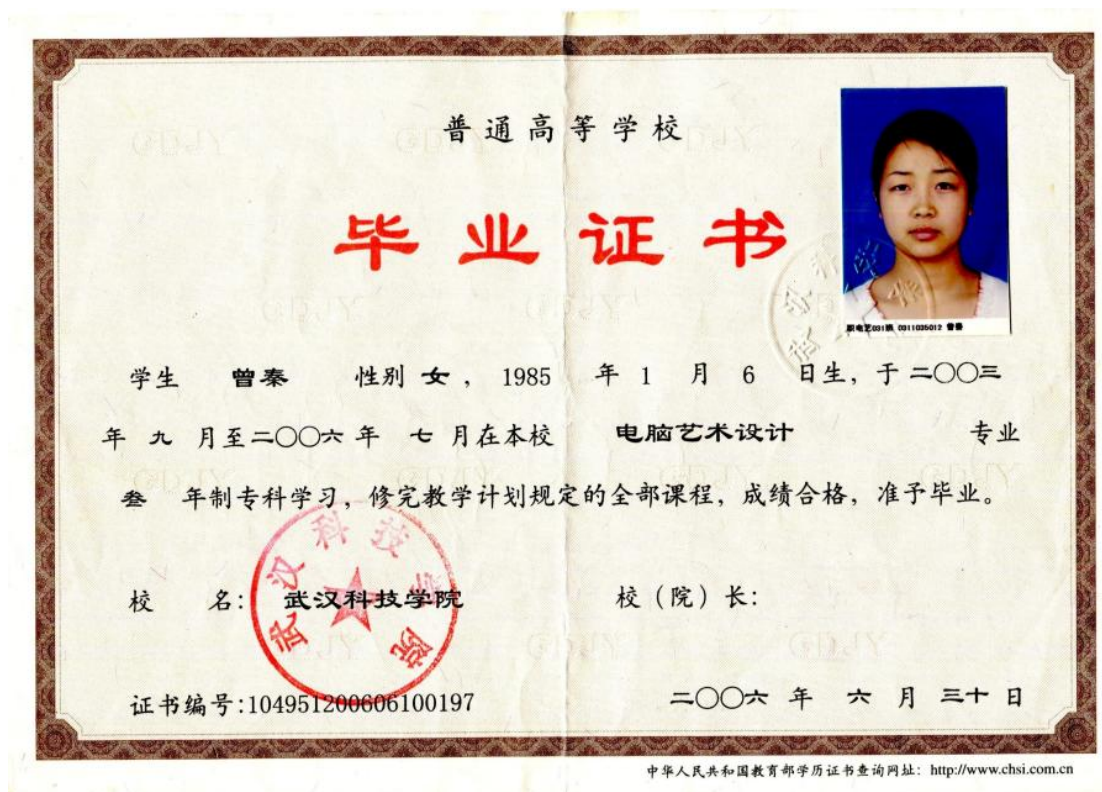 普通高等学校
毕业证书
职电艺031班 0311035012 曾秦
学生 曾秦 性别 女, 1985 年 1 月 6 日生, 于 二〇〇三
年 九 月至 二〇〇六 年 七 月在本校 电脑艺术设计 专业
叁 年制专科学习, 修完教学计划规定的全部课程, 成绩合格, 准予毕业。
武汉科技学院
校 名: 武汉科技学院 校(院)长:
证书编号:104951200606100197 二〇〇六 年 六 月 三十 日
中华人民共和国教育部学历证书查询网址: http://www.chsi.com.cn